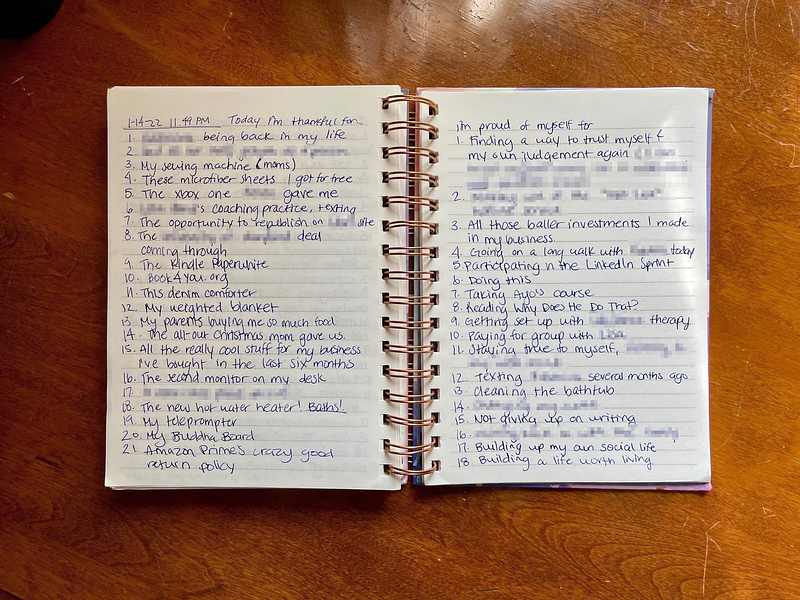 1-14-22 11:49 PM Today I'm thankful for...
1. being back in my life
2.
3. My sewing machine (moms)
4. These microfiber sheets I got for free
5. The xbox one gave me
6. 's coaching practice, texting
7. The opportunity to republish on site
8. The deal
coming through
9. The Kindle Paperwhite
10. Book4You.org
11. This denim comforter
12. My weighted blanket
13. My parents buying me so much food
14. The all-out Christmas mom gave us
15. All the really cool stuff for my business
I've bought in the last six months
16. The second monitor on my desk
17.
18. The new hot water heater! Baths!
19. My teleprompter
20. My Buddha Board
21. Amazon Prime's crazy good
return policy
I'm proud of myself for
1. Finding a way to trust myself &
my own judgement again
2.
3. All those baller investments I made
in my business
4. Going on a long walk with today
5. Participating in the LinkedIn Sprint
6. Doing this
7. Taking course
8. Reading Why Does He Do That?
9. Getting set up with therapy
10. Paying for group with
11. Staying true to myself,
12. Texting several months ago
13. Cleaning the bathtub
14.
15. Not giving up on writing
16.
17. Building up my own social life
18. Building a life worth living